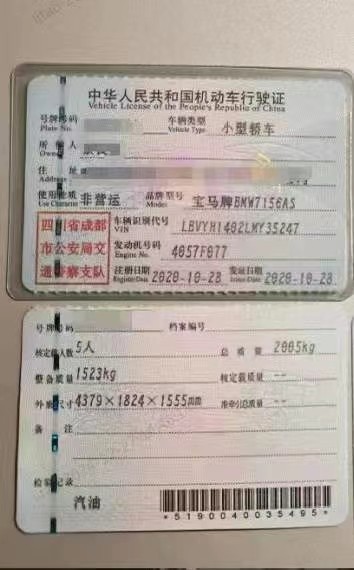 中华人民共和国机动车行驶证
Vehicle License of the People's Republic of China
号牌号码 车辆类型 小型轿车
Plate No. Vehicle Type
所有人
Owner
住址
Address
使用性质 非营运 品牌型号 宝马牌BMW7156AS
Use Character Model
四川省成都市公安局交通警察支队
车辆识别代号 LBVYH1402LMY35247
VIN
发动机号码 4057F077
Engine No.
注册日期 2020-10-28 发证日期 2020-10-28
Register Date Issue Date
号牌号码 档案编号
核定载人数 5人 总质量 2005kg
整备质量 1523kg 核定载质量 --
外廓尺寸 4379×1824×1555mm 准牵引总质量 --
备注
检验记录
汽油
*5190040035495*